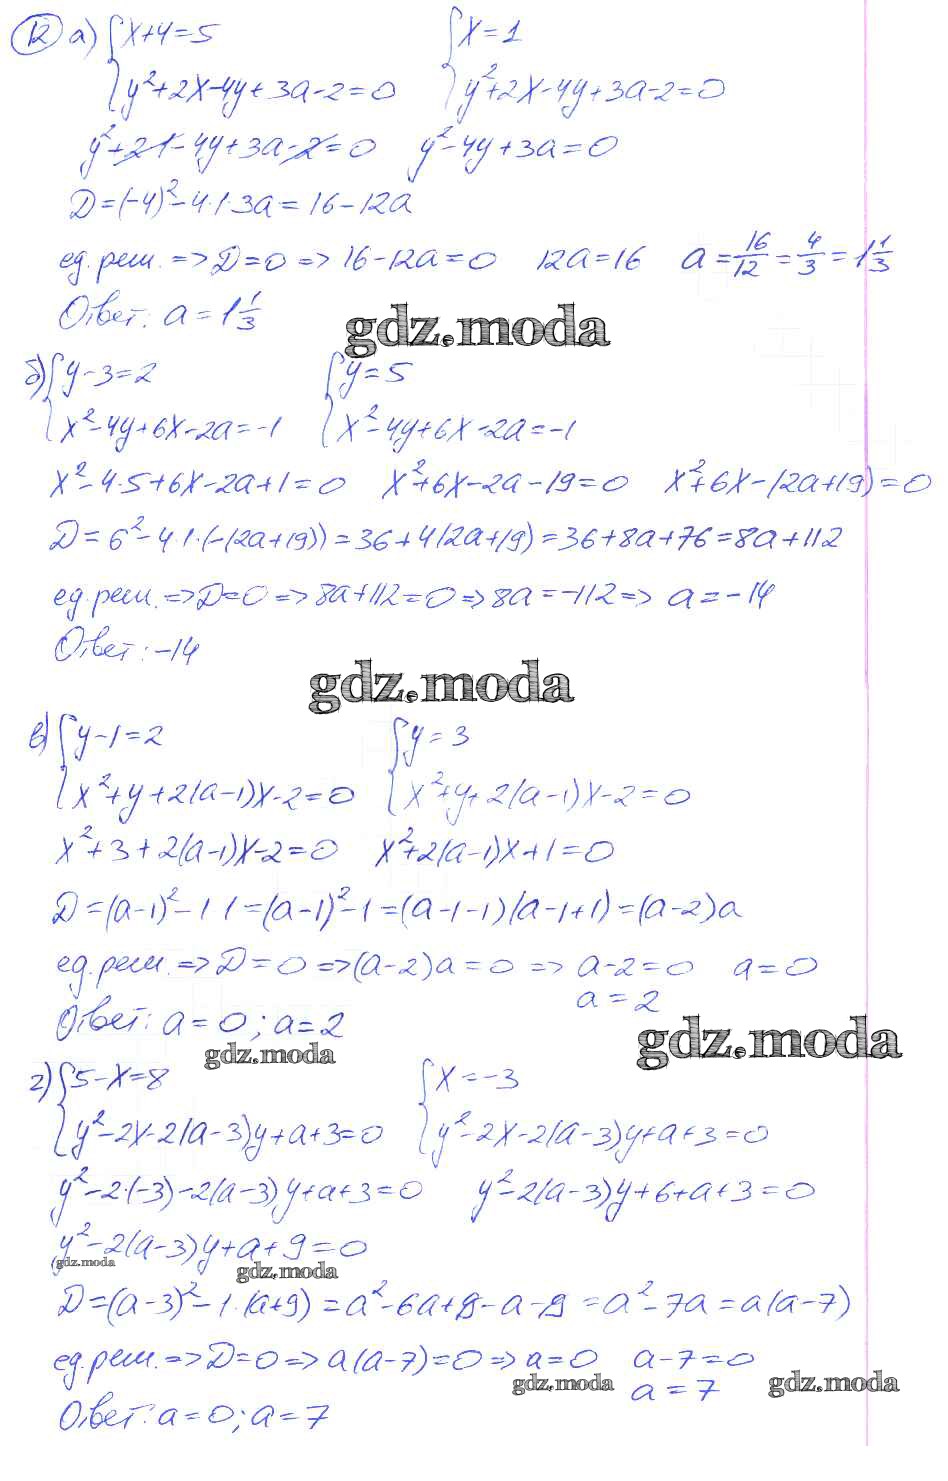 12 а) { x+4=5 { x=1
y²+2x-4y+3a-2=0 y²+2x-4y+3a-2=0
y²+2·1-4y+3a-2=0 y²-4y+3a=0
D=(-4)²-4·1·3a=16-12a
ед. реш. => D=0 => 16-12a=0 12a=16 a=16/12=4/3=1 1/3
Ответ: a=1 1/3
gdz.moda
б) { y-3=2 { y=5
x²-4y+6x-2a=-1 x²-4y+6x-2a=-1
x²-4·5+6x-2a+1=0 x²+6x-2a-19=0 x²+6x-(2a+19)=0
D=6²-4·1·(-(2a+19))=36+4(2a+19)=36+8a+76=8a+112
ед. реш. => D=0 => 8a+112=0 => 8a=-112 => a=-14
Ответ: -14
gdz.moda
в) { y-1=2 { y=3
x²+y+2(a-1)x-2=0 x²+y+2(a-1)x-2=0
x²+3+2(a-1)x-2=0 x²+2(a-1)x+1=0
D=(a-1)²-1·1=(a-1)²-1=(a-1-1)(a-1+1)=(a-2)a
ед. реш. => D=0 => (a-2)a=0 => a-2=0 a=0
a=2
Ответ: a=0; a=2
gdz.moda
gdz.moda
г) { 5-x=8 { x=-3
y²-2x-2(a-3)y+a+3=0 y²-2x-2(a-3)y+a+3=0
y²-2·(-3)-2(a-3)y+a+3=0 y²-2(a-3)y+6+a+3=0
y²-2(a-3)y+a+9=0
gdz.moda
gdz.moda
D=(a-3)²-1·(a+9)=a²-6a+9-a-9=a²-7a=a(a-7)
ед. реш. => D=0 => a(a-7)=0 => a=0 a-7=0
gdz.moda
a=7
gdz.moda
Ответ: a=0; a=7